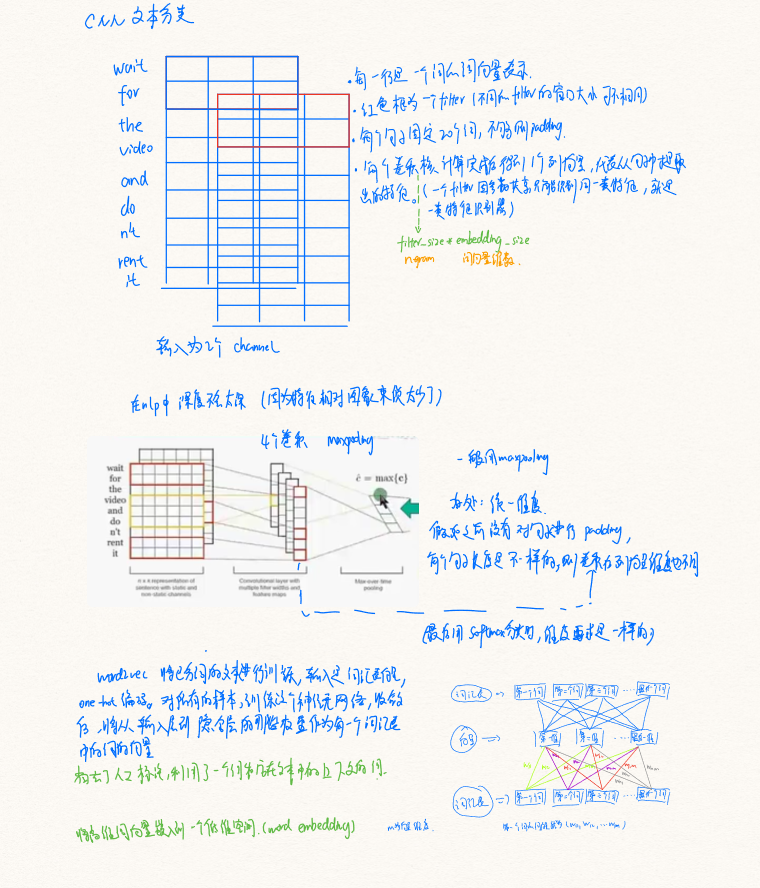 CNN 文本分类
wait
for
the
video
and
do
n't
rent
it
·每一行是一个词的词向量表示.
·红色框为一个filter (不同的filter的窗口大小可不相同)
·每个句子固定20个词, 不够则padding.
·每个卷积核计算完成后得到1个列向量, 代表从句子中提取
出的特征。(一个filter因参数共享只能识别同一类特征, 就是
一类特征识别器)
filter_size * embedding_size
ngram 词向量维数.
输入为2个 channel
在nlp中 深度不会太深 (因为特征相对图象来说太少了)
4个卷积 maxpooling
wait
for
the
video
and
do
n't
rent
it
ĉ = max{c}
n x k representation of
sentence with static and
non-static channels
Convolutional layer with
multiple filter widths and
feature maps
Max-over-time
pooling
一般用maxpooling
好处: 统一维度.
假如之前没有对句子进行 padding,
每个句子长度是不一样的, 则卷积后列向量维度也不同
(最后用 softmax分类时, 维度要求是一样的)
word2vec 将已分词的文本进行训练, 输入是词汇表的
one-hot 编码。对所有的样本, 训练这个神经元网络, 收敛
后, 将从输入层到隐含层的那些权重作为每一个词汇表
中的词的向量
构去了人工标注, 利用了一个词和在文本中的上下文的词.
将高维词向量嵌入到一个低维空间. (word embedding)
词汇表
第一个词 第二个词 第三个词 ···· 最后一个词
向量
第一维 第二维 ···· 最后一维
词汇表
第一个词 第二个词 第三个词 ···· 最后一个词
m为向量维度